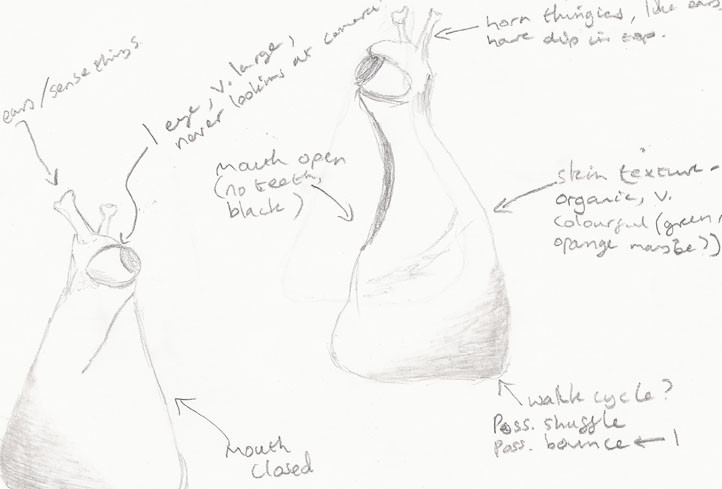 ears/sense things
1 eye, v. large,
never looking at camera
horn thingies, like ears
have dip in top.
mouth open
(no teeth,
black)
skin texture -
organic, v.
colourful (green,
orange maybe?)
walk cycle?
Poss. shuffle
Poss. bounce ← 1
mouth
closed